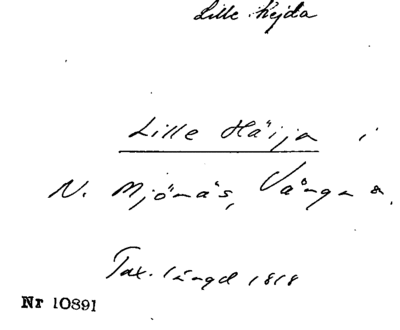 Lille Hejda
Lille Häija i
N. Mjönäs, Vånga s.
Tax. längd 1818
Nr 10891